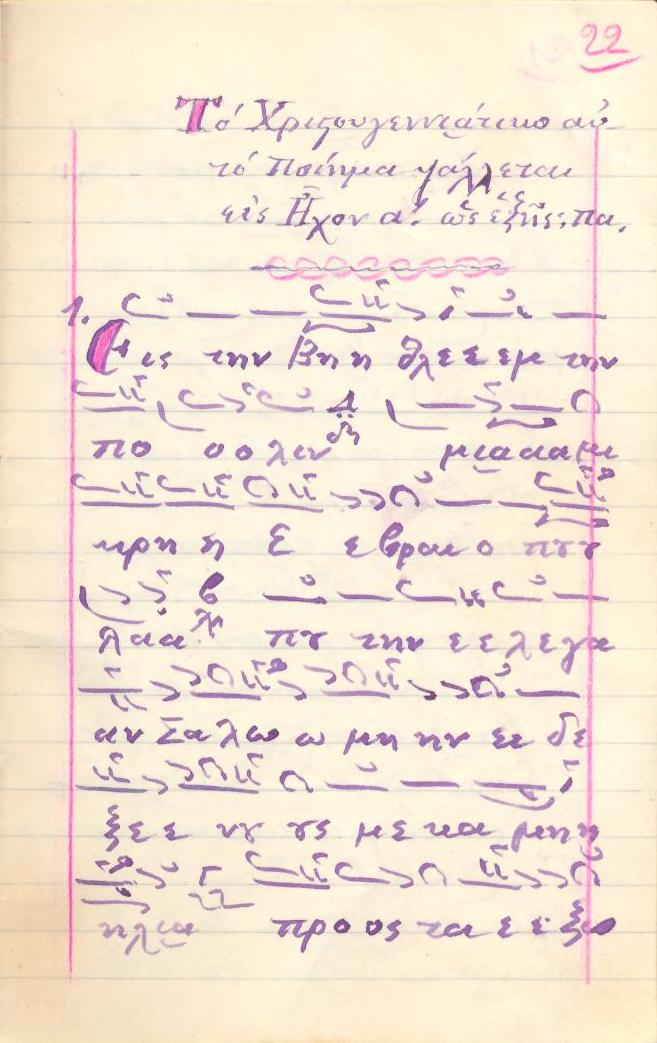 22
Τό Χριστουγεννιάτικο αὐ-
τό Ποίημα ψάλλεται
εἰς Ἦχον α΄. ὡς ἑξῆς: Πα.
1.
Εις την Βη η θλε ε εμ την
πο ο ο λιν μι α α α μι
κρη η Ε ε βραι ο που
λα α πυ την ε ε λε γα
αν Σα λω ω μη ην ει δε
ξε ε ε νυ υς με κα μη η
η λια προ ος τα ε ε ξω